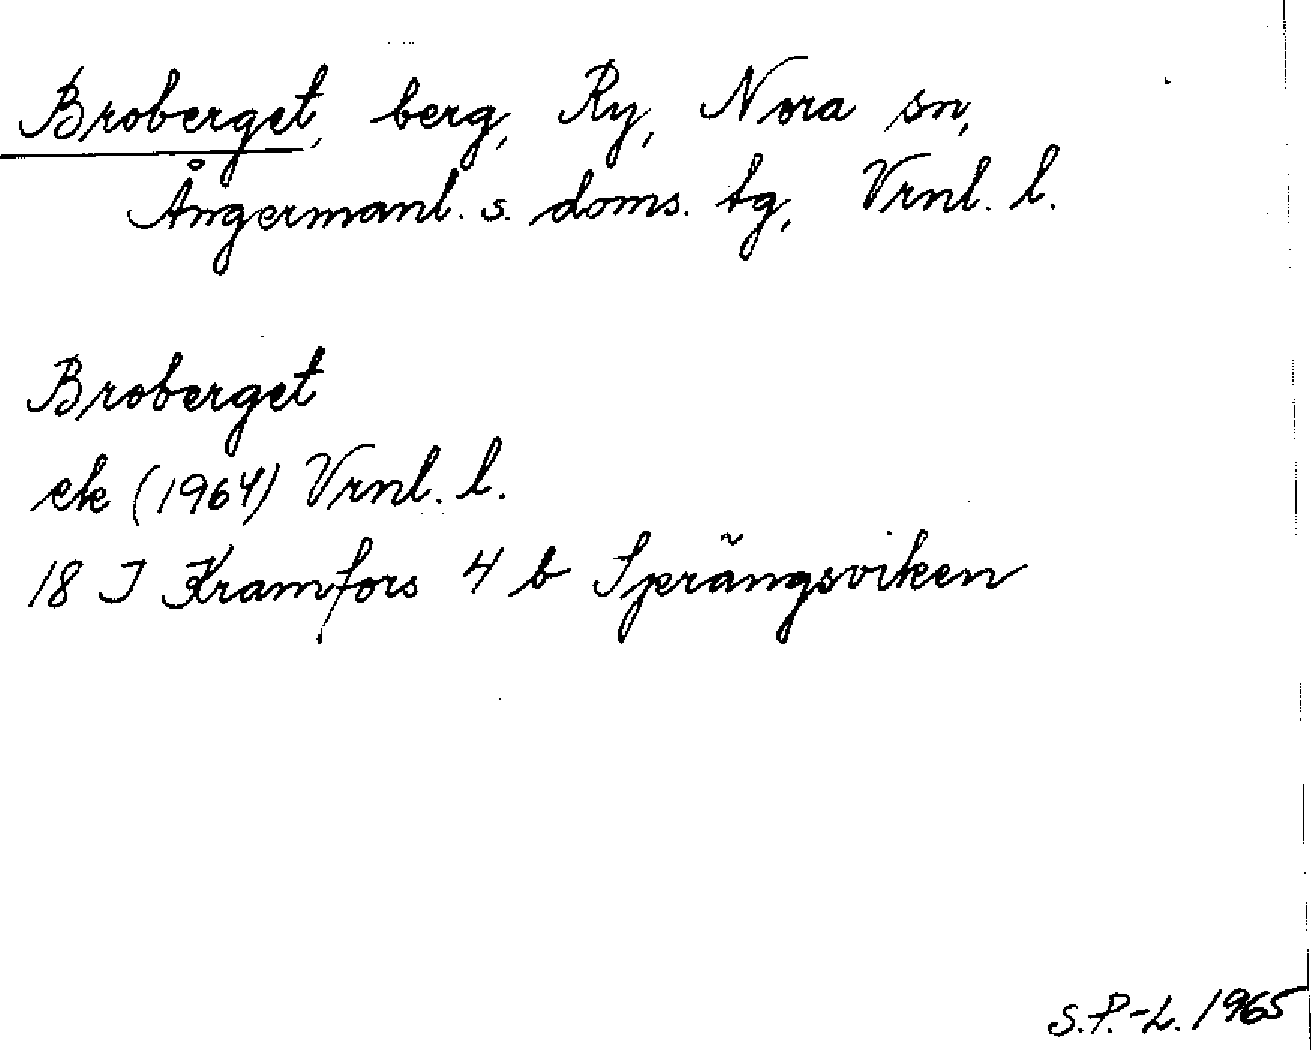 Broberget, berg, Ry, Nora sn,
Ångermanl. s. doms. tg, Vrnl. l.
Broberget
ek (1964) Vrnl. l.
18 I Kramfors 4 b Sprängsviken
S.P.-L. 1965